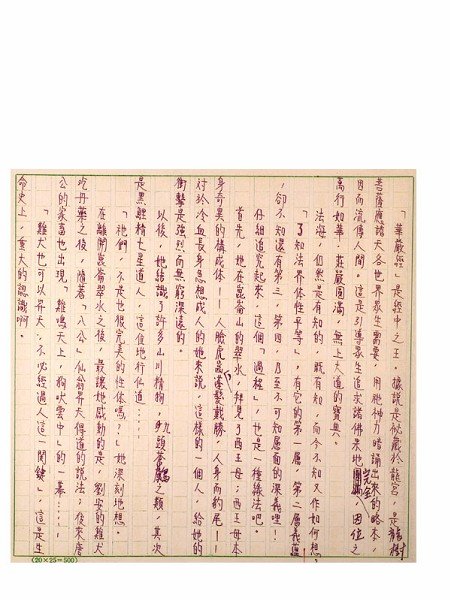 「華嚴經」是經中之王，據說是祕藏於龍宮，是龍樹
菩薩應諸天各世界衆生需要，用他神力暗誦出來的略本，
因而流傳人間。這是引導衆生追求諸佛果地圓滿完全、因位之
萬行如華，莊嚴圓滿，無上大道的寶典。
法海，自然是有知的，既有知，而今不知又作如何想？
「了知法界体性平等」，有它的第一層，第二層義蘊
，卻不知還有第三，第四，乃至不可知層面的深義哩！
仔細追究起來，這個「過程」，也是一種緣法吧。
首先，她在崑崙山的翠水，拜見了西王母；西王母本
身奇異的構成体！——人臉虎齒，戴勝，人身而豹尾——
對於冷血長身思想成人的她來說，這樣的一個人，給她的
衝擊是強烈而無窮深遠的。
以後，她結識了許多山川精物，之類，其次
是黑鯉精七星道人，這位地行仙道⋯⋯
「祂們，不是也很完美的性体嗎？」她深刻地想。
在離開崑崙翠水之後，最讓她感動的是，劉安的雞犬
吃丹藥之後，隨著「八公」仙翁昇天得道的說法；後來唐
公的家畜也出現「雞鳴天上，狗吠雲中」的一幕⋯⋯
「雞犬也可以昇天，不必經過人這一關鍵」，這是生
命史上，重大的認識啊。
(20×25=500)